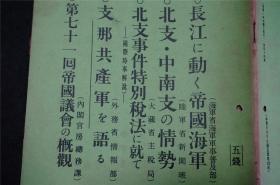 五錢
長江に動く帝國海軍
(海軍省海軍軍事普及部)
北支・中南支の情勢
(陸軍省新聞班)
北支事件特別税法に就て
(大藏省主税局)
支那共產軍を語る
(外務省情報部)
第七十一回帝國議會の概觀
(內閣官房總務課)